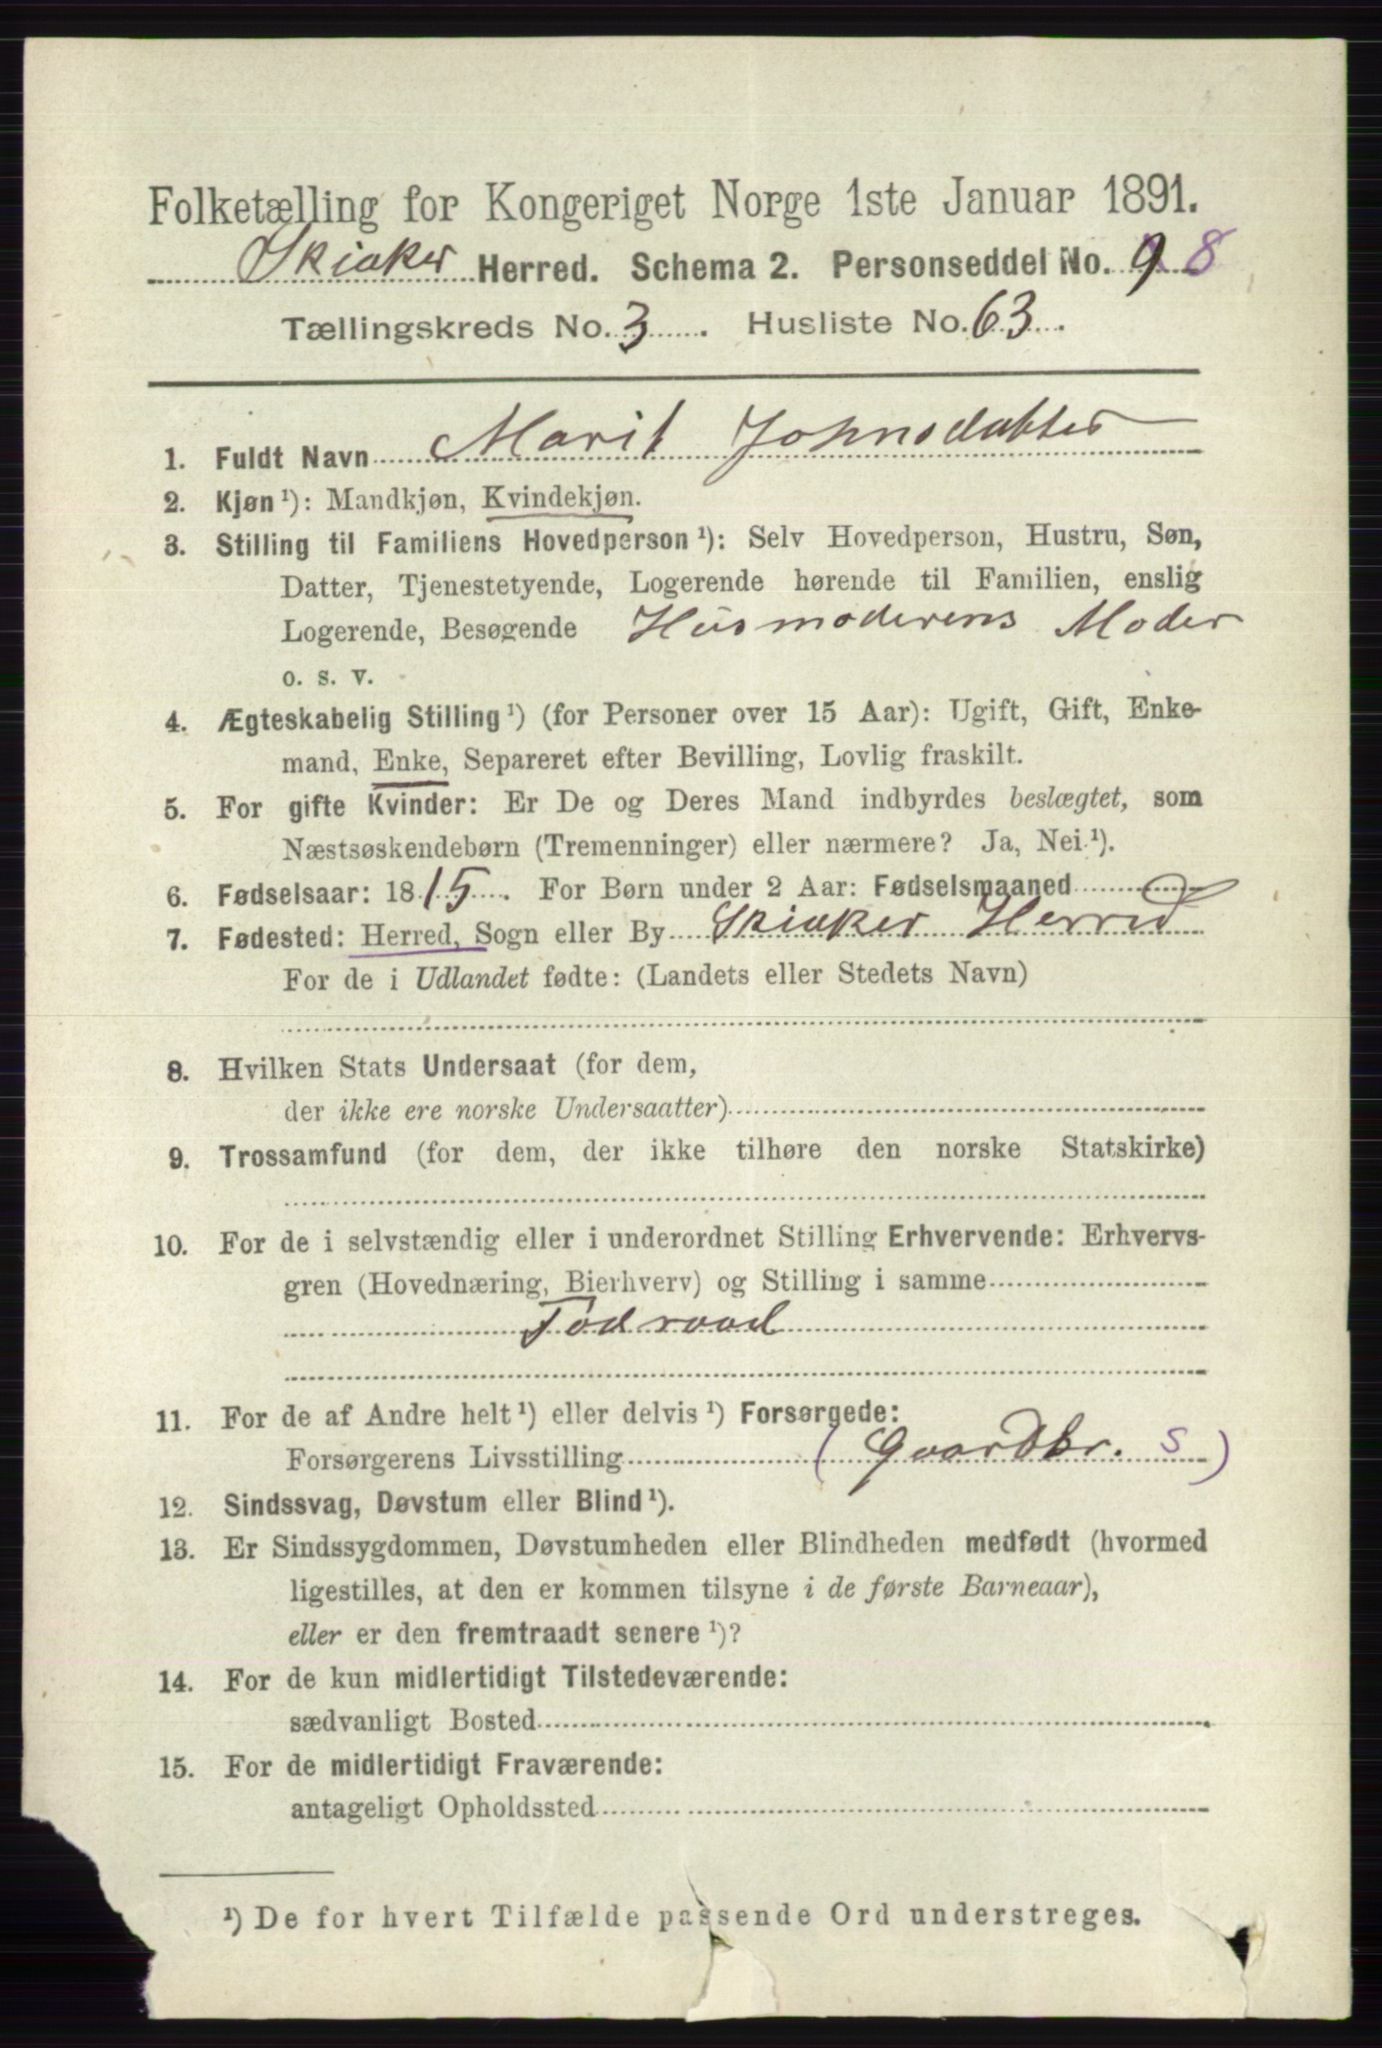 Folketælling for Kongeriget Norge 1ste Januar 1891.
Skiaker Herred. Schema 2. Personseddel No. 9 8
Tællingskreds No. 3. Husliste No. 63.
1. Fuldt Navn Marit Johnsdatter
2. Kjøn¹): Mandkjøn, Kvindekjøn.
3. Stilling til Familiens Hovedperson¹): Selv Hovedperson, Hustru, Søn,
Datter, Tjenestetyende, Logerende hørende til Familien, enslig
Logerende, Besøgende Husmoderens Moder
o. s. v.
4. Ægteskabelig Stilling¹) (for Personer over 15 Aar): Ugift, Gift, Enke-
mand, Enke, Separeret efter Bevilling, Lovlig fraskilt.
5. For gifte Kvinder: Er De og Deres Mand indbyrdes beslægtet, som
Næstsøskendebørn (Tremenninger) eller nærmere? Ja, Nei.¹).
6. Fødselsaar: 1815. For Børn under 2 Aar: Fødselsmaaned
7. Fødested: Herred, Sogn eller By Skiaker Herred
For de i Udlandet fødte: (Landets eller Stedets Navn)
8. Hvilken Stats Undersaat (for dem,
der ikke ere norske Undersaatter)
9. Trossamfund (for dem, der ikke tilhøre den norske Statskirke)
10. For de i selvstændig eller i underordnet Stilling Erhvervende: Erhvervs-
gren (Hovednæring, Bierhverv) og Stilling i samme
Fodraad
11. For de af Andre helt¹) eller delvis¹) Forsørgede:
Forsørgerens Livsstilling (Gaardbr. S)
12. Sindssvag, Døvstum eller Blind¹).
13. Er Sindssygdommen, Døvstumheden eller Blindheden medfødt (hvormed
ligestilles, at den er kommen tilsyne i de første Barneaar),
eller er den fremtraadt senere¹)?
14. For de kun midlertidigt Tilstedeværende:
sædvanligt Bosted
15. For de midlertidigt Fraværende:
antageligt Opholdssted
¹) De for hvert Tilfælde passende Ord understreges.